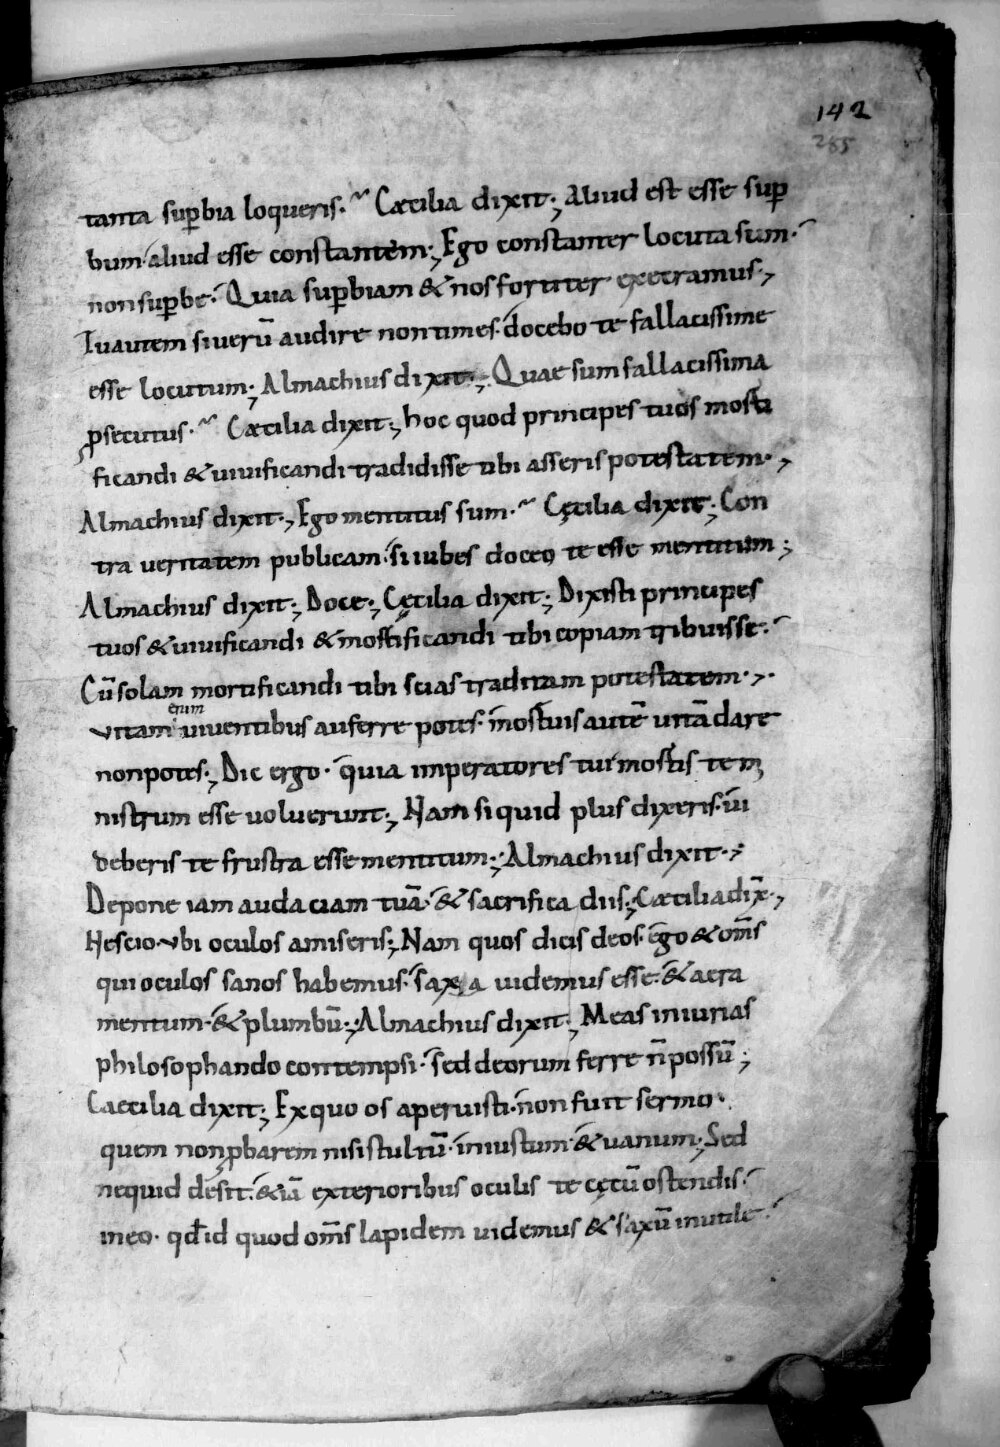 142
285
tanta sup̄bia loqueris· Cæcilia dixit; Aliud est esse sup̄
bum· aliud esse constantem; Ego constanter locuta sum·
non sup̄be· Quia sup̄biam & nos fortiter execramus;
Tu autem si uerū audire non times· docebo te fallacissime
esse locutum; Almachius dixit; Quae sum fallacissima
p̱secutus· Cæcilia dixit; hoc quod principes tuos morti
ficandi & uiuificandi tradidisse tibi asseris potestatem;
Almachius dixit; Ego mentitus sum· Cęcilia dixit; Con
tra ueritatem publicam· si iubes doceo te esse mentitum;
Almachius dixit; Doce; Cęcilia dixit; Dixisti principes
tuos & uiuificandi & mortificandi tibi copiam tribuisse·
Cū solam mortificandi tibi scias traditam potestatem;
enim
vitam uiuentibus auferre potes· mortuis autē uitā dare
non potes; Dic ergo· quia imperatores tui mortis te mi
nistrum esse uoluerunt; Nam si quid plus dixeris· ui
deberis te frustra esse mentitum; Almachius dixit;
Depone iam audaciam tuā· & sacrifica diis; Cæcilia dix̄;
Nescio· vbi oculos amiseris; Nam quos dicis deos· ego & om̄s
qui oculos sanos habemus· saxa uidemus esse· & aera
mentum· & plumbū; Almachius dixit; Meas iniurias
philosophando contempsi· sed deorum ferre n̄ possū;
Caecilia dixit; Ex quo os aperuisti· non fuit sermo·
quem non p̱barem nisi stultū· iniustum· & uanum; Sed
nequid desit· & iā exterioribus oculis te cęcū ostendis·
meo· qd̄ id quod om̄s lapidem uidemus & saxū inutile·